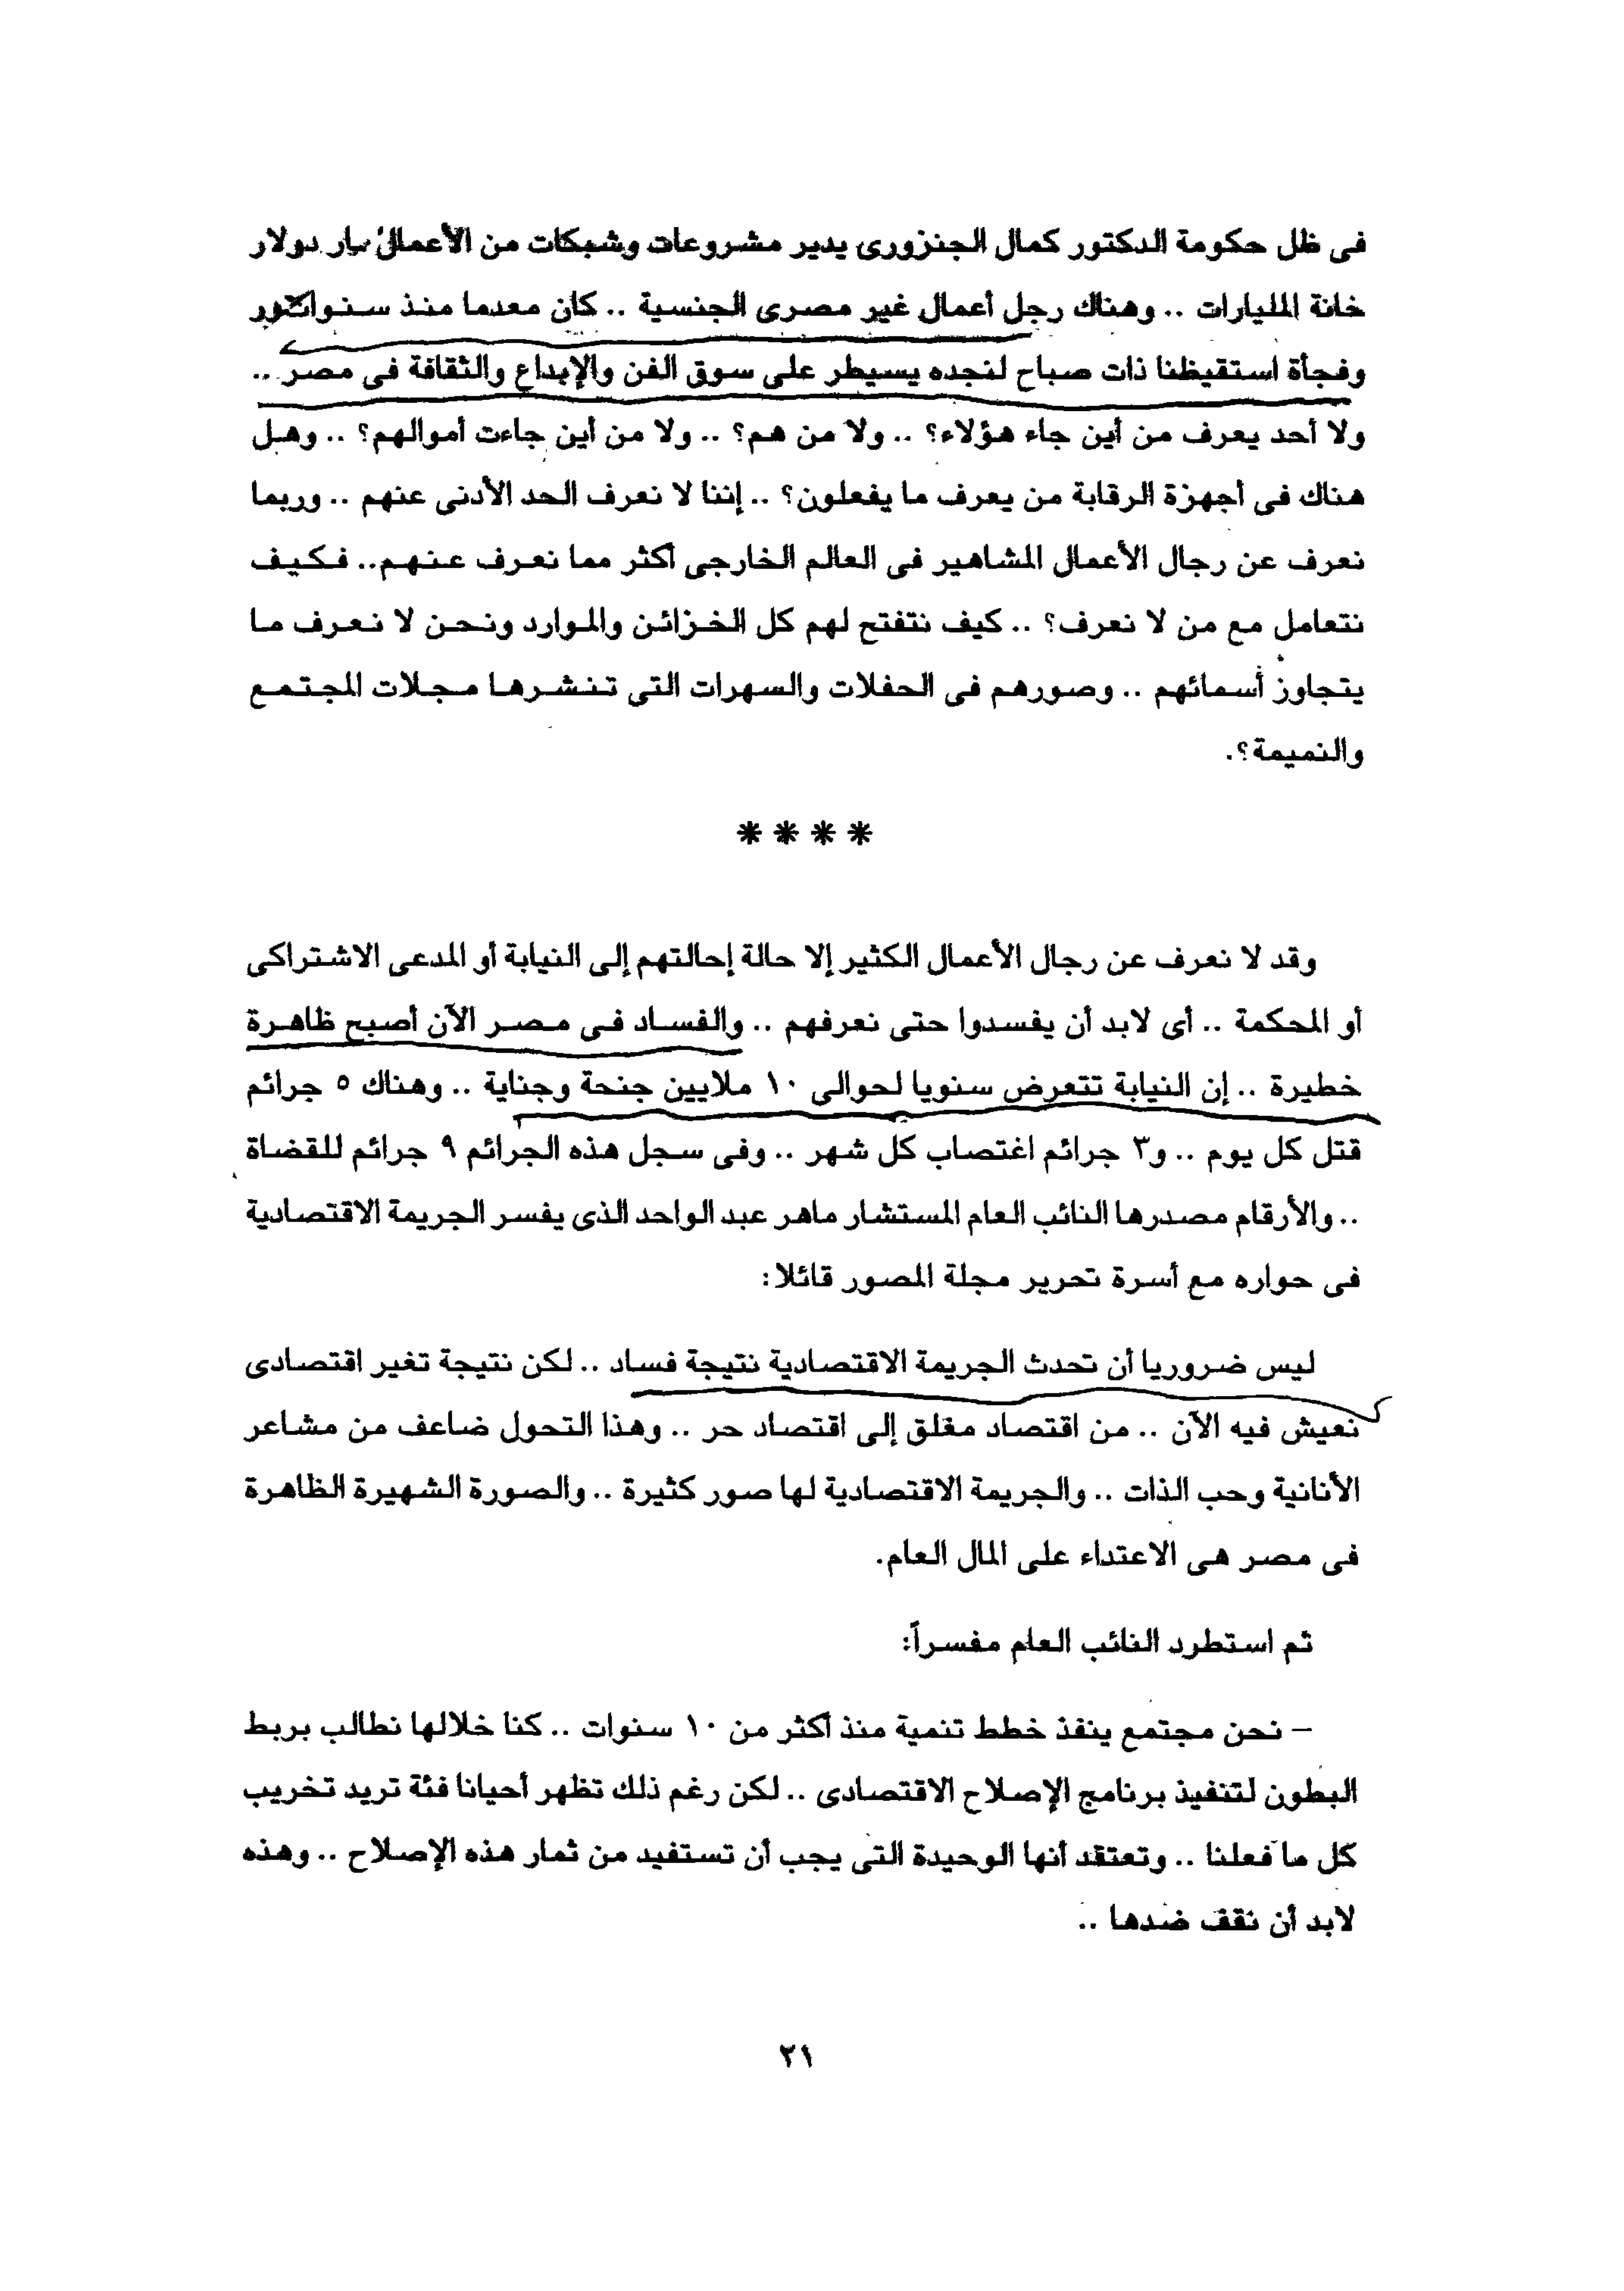 فى ظل حكومة الدكتور كمال الجنزورى يدير مشروعات وشبكات من الأعمال دولار
خانة المليارات .. وهناك رجل أعمال غير مصرى الجنسية .. كان معدما منذ
وفجأة استقيظنا ذات صباح لنجده يسيطر على سوق الفن والإبداع والثقافة فى مصر ..
ولا أحد يعرف من أين جاء هؤلاء؟ .. ولا من هم؟ .. ولا من أين جاءت أموالهم؟ .. وهل
هناك فى أجهزة الرقابة من يعرف ما يفعلون؟ .. إننا لا نعرف الحد الأدنى عنهم .. وربما
نعرف عن رجال الأعمال المشاهير فى العالم الخارجى أكثر مما نعرف عنهم.. فكيف
نتعامل مع من لا نعرف؟ .. كيف نتفتح لهم كل الخزائن والموارد ونحن لا نعرف ما
يتجاوز أسمائهم .. وصورهم فى الحفلات والسهرات التى تنشرها مجلات المجتمع
والنميمة؟.
****
وقد لا نعرف عن رجال الأعمال الكثير إلا حالة إحالتهم إلى النيابة أو المدعى الاشتراكى
أو المحكمة .. أى لابد أن يفسدوا حتى نعرفهم .. والفساد فى مصر الآن أصبح ظاهرة
خطيرة .. إن النيابة تتعرض سنويا لحوالى ١٠ ملايين جنحة وجناية .. وهناك ٥ جرائم
قتل كل يوم .. و٣ جرائم اغتصاب كل شهر .. وفى سجل هذه الجرائم ٩ جرائم للقضاة
.. والأرقام مصدرها النائب العام المستشار ماهر عبد الواحد الذى يفسر الجريمة الاقتصادية
فى حواره مع أسرة تحرير مجلة المصور قائلا:
ليس ضروريا أن تحدث الجريمة الاقتصادية نتيجة فساد .. لكن نتيجة تغير اقتصادى
نعيش فيه الآن .. من اقتصاد مغلق إلى اقتصاد حر .. وهذا التحول ضاعف من مشاعر
الأنانية وحب الذات .. والجريمة الاقتصادية لها صور كثيرة .. والصورة الشهيرة الظاهرة
فى مصر هى الاعتداء على المال العام.
ثم استطرد النائب العام مفسراً:
– نحن مجتمع ينفذ خطط تنمية منذ أكثر من ١٠ سنوات .. كنا خلالها نطالب بربط
البطون لتنفيذ برنامج الإصلاح الاقتصادى .. لكن رغم ذلك تظهر أحيانا فئة تريد تخريب
كل ما فعلنا .. وتعتقد أنها الوحيدة التى يجب أن تستفيد من ثمار هذه الإصلاح .. وهذه
لابد أن نقف ضدها ..
٢١